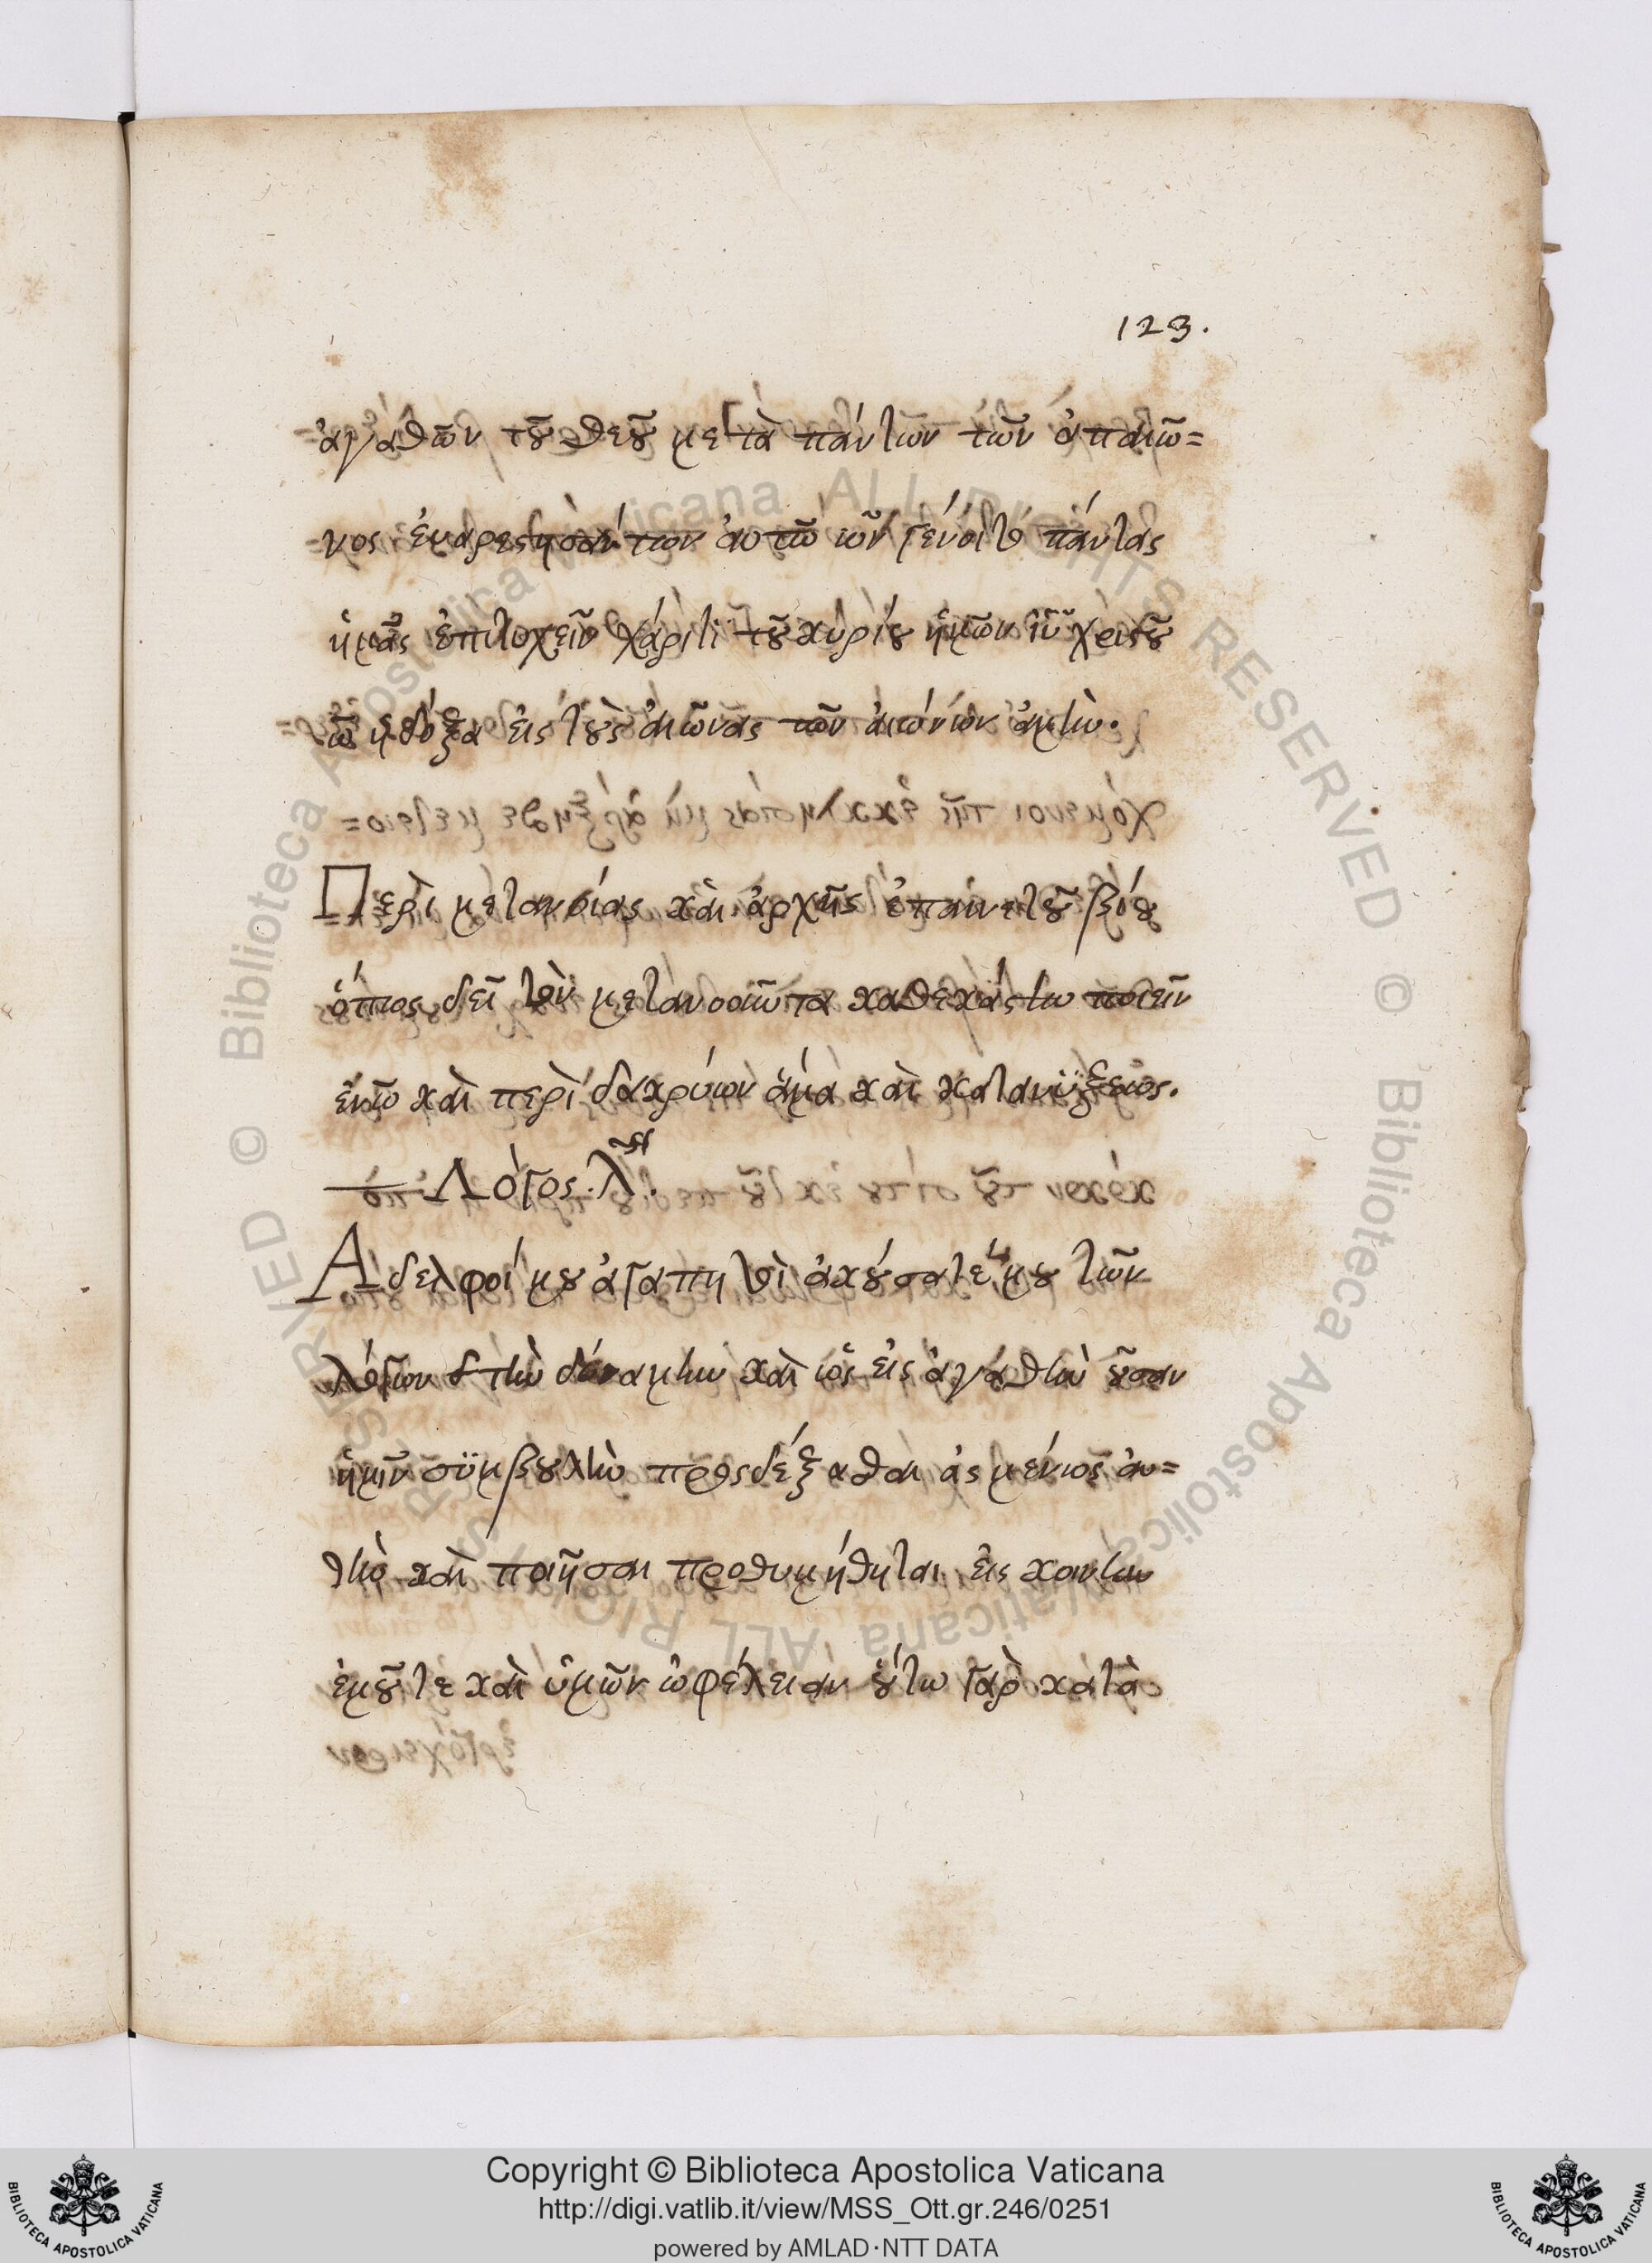 123.
ἀγαθῶν τοῦ θεοῦ μετὰ πάντων τῶν ἀπαιῶ=
νος ἐυαρεστησάντων ἀυτῶ ὧν γένοιτο πάντας
ἡμᾶς ἐπιτυχεῖν χάριτι τοῦ κυρίου ἡμῶν ἰῦ χριστοῦ
ὧ ἡ δόξα εἰς τοὺς ἀιῶνας τῶν ἀιώνων ἀμὴν.
Περὶ μετανοίας καὶ ἀρχῆς ἐπαινετοῦ βίου
ὅπως δεῖ τὸν μετανοοῦντα καθεκάστην ποιεῖν
ἐνῶ καὶ περὶ δακρύων ἅμα καὶ κατανύξεως.
Λόγος. λ̅.
Ἀδελφοί μου ἀγαπητοὶ ἀκούσατέ μου τῶν
λόγων τὴν δύναμιν καὶ ὡς εἰς ἀγαθὴν οὖσαν
ἡμῖν συμβουλὴν προσδέξασθαι ἀσμένως ἀυ=
τὴν καὶ ποιῆσαι προθυμήθηται εἰς κοινὴν
ἐμοῦ τε καὶ ὑμῶν ὠφέλειαν οὕτω γὰρ κατὰ
Copyright © Biblioteca Apostolica Vaticana
http://digi.vatlib.it/view/MSS_Ott.gr.246/0251
powered by AMLAD·NTT DATA
BIBLIOTECA APOSTOLICA VATICANA
BIBLIOTECA APOSTOLICA VATICANA
© Biblioteca Apostolica Vaticana ALL RIGHTS RESERVED
© Biblioteca Apostolica Vaticana ALL RIGHTS RESERVED